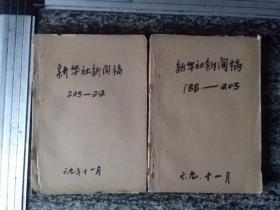 新华社新闻稿
203—212
六九年十一月
新华社新闻稿
188—203
六九.十一月